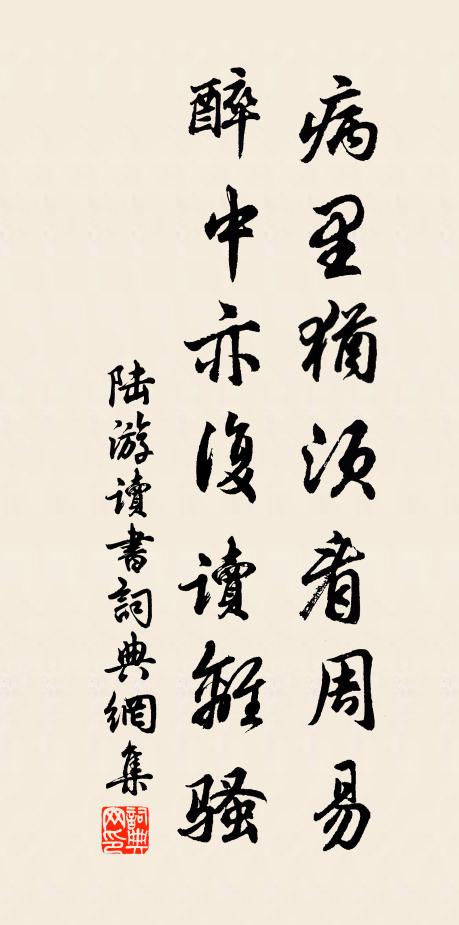 病里猶須看周易
醉中亦復讀離騷
陸游讀書詞典網集
詞典網印